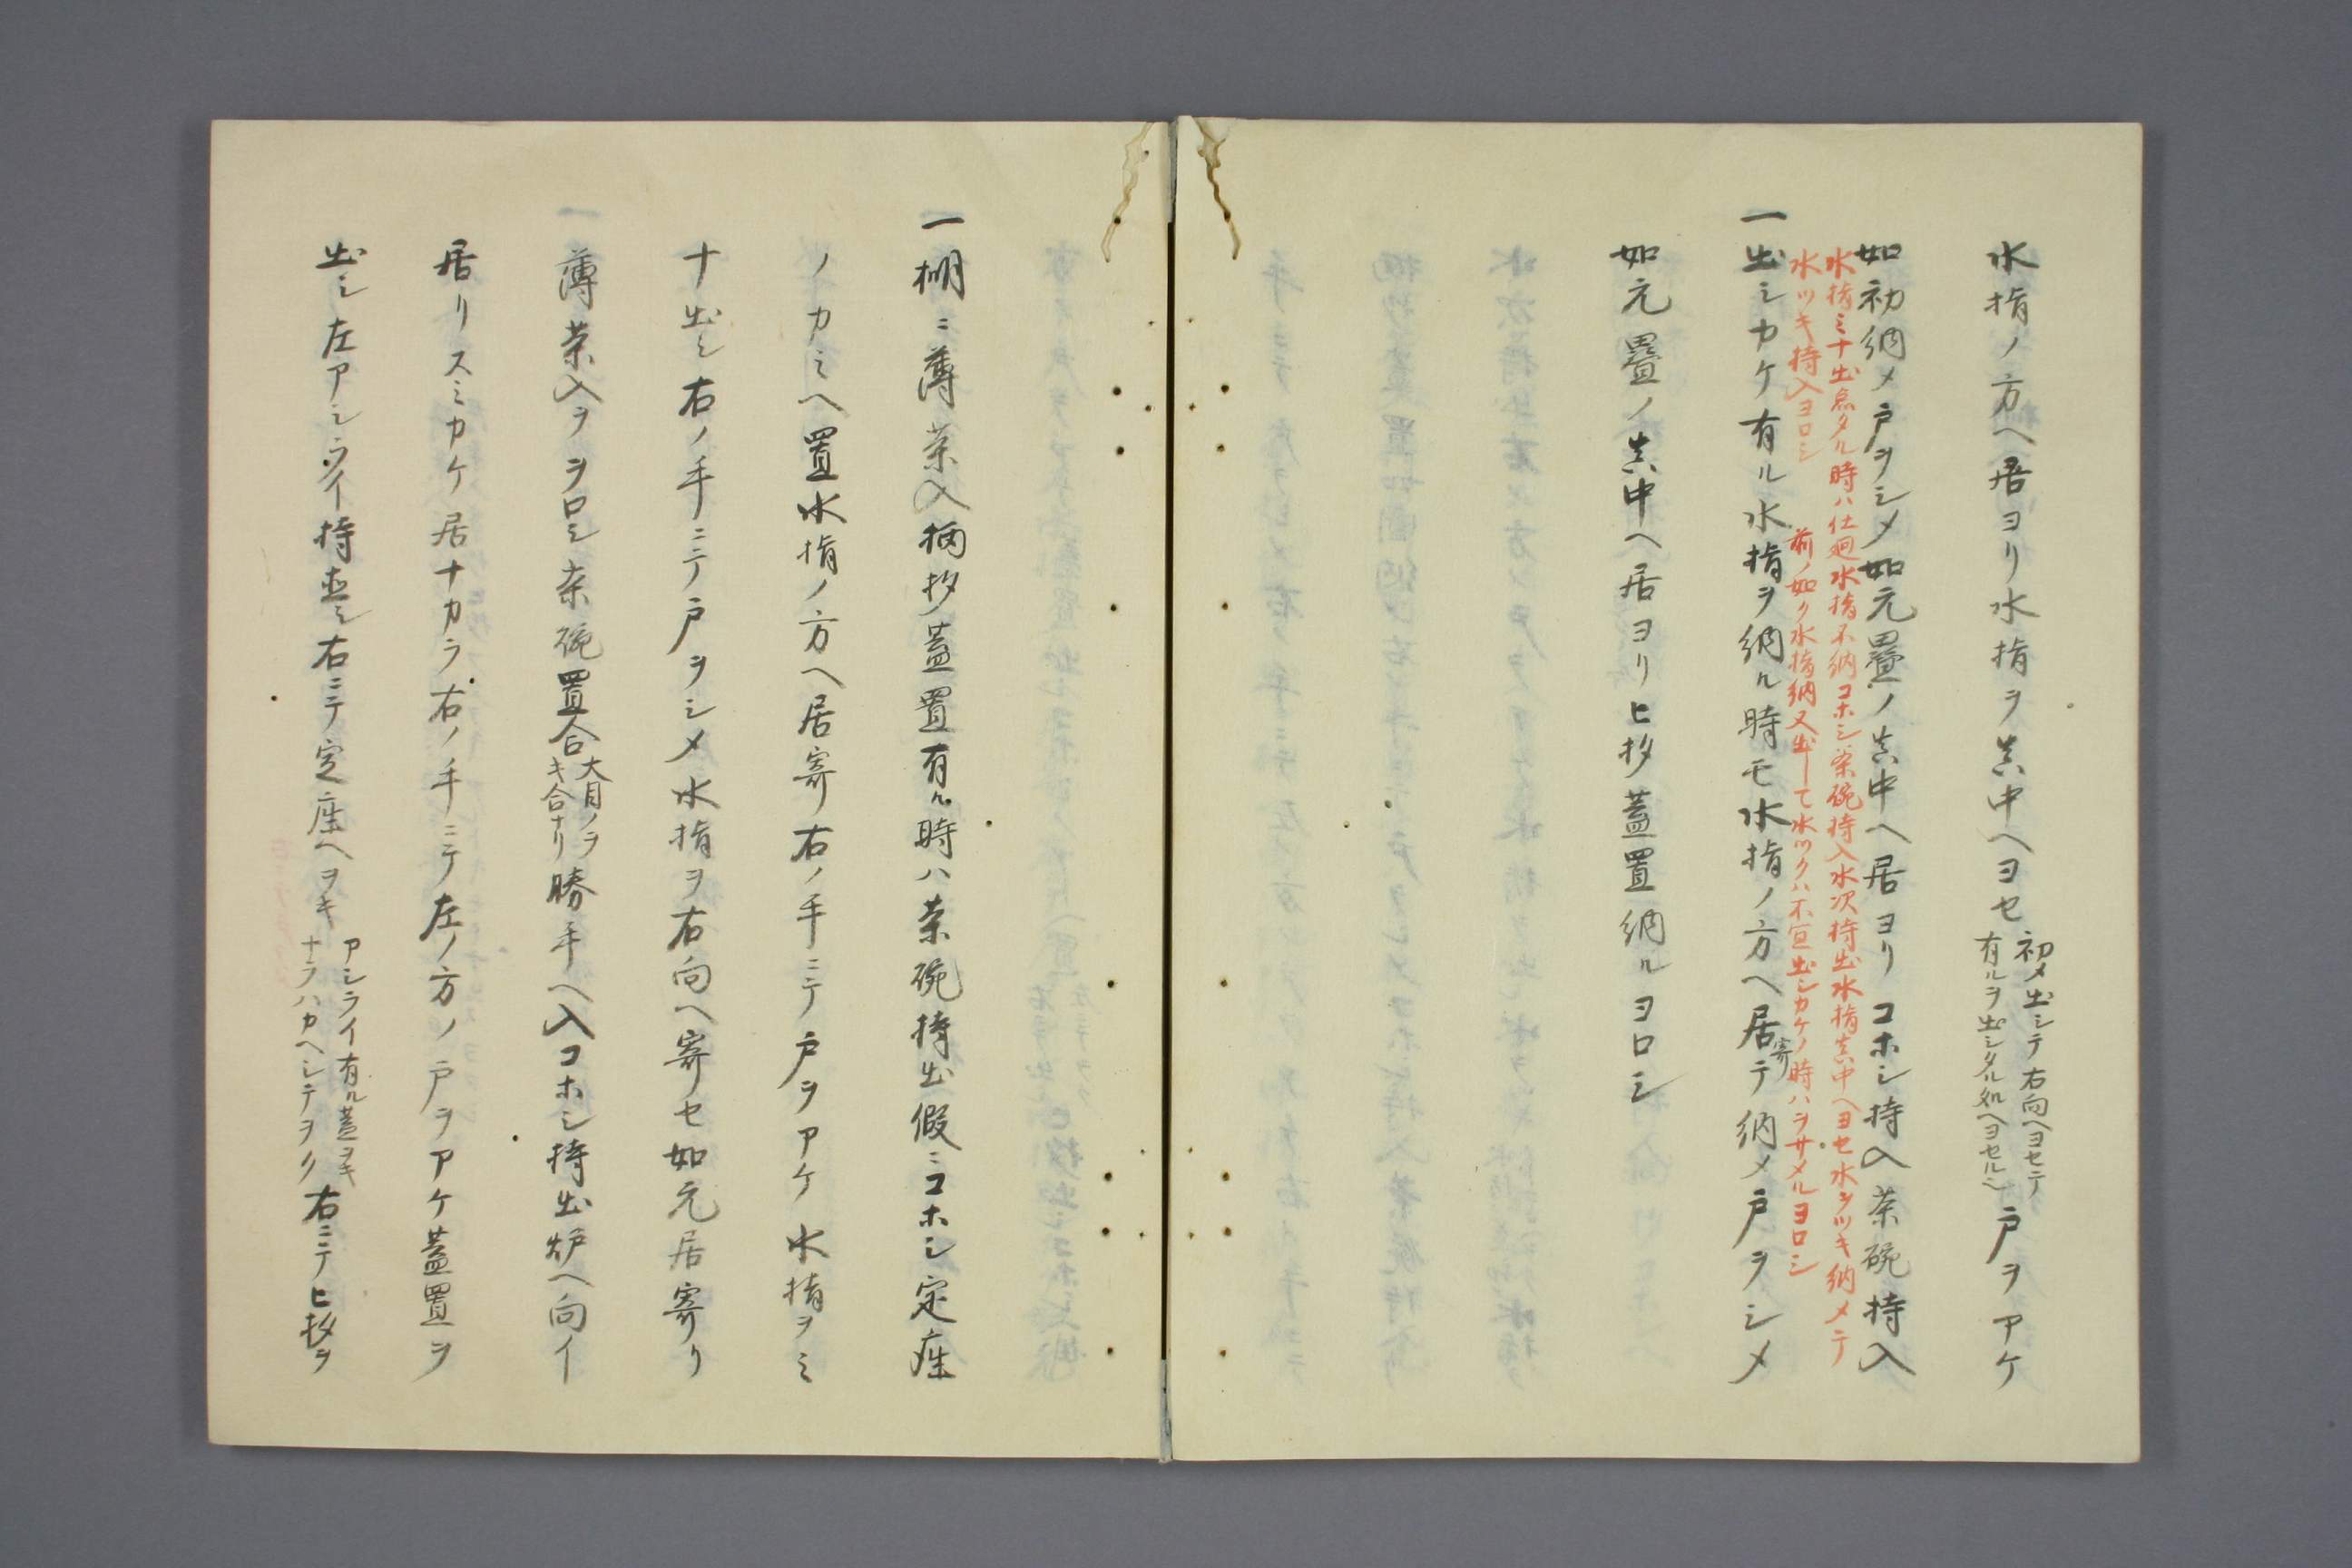 水指ノ方ヘ居ヨリ水指ヲ真中ヘヨセ
初メ出シテ右向ヘヨセテ
有ルヲ出シタル処ヘヨセル
戸ヲアケ
如初納メ戸ヲシメ如元疊ノ真中ヘ居ヨリコホシ持入茶碗持入
水指ミナ出シタル時ハ仕廻水指不納コホシ茶碗持入水次持出水指真中ヘヨセ水ヲツキ納メテ
水ツキ持入ヨロシ
前ノ如ク水指納又出シテ水ツクハ不宜出シカケノ時ハヲサメルヨロシ
一出シカケ有ル水指ヲ納ル時モ水指ノ方ヘ居寄テ納メ戸ヲシメ
如元疊ノ真中ヘ居ヨリヒ抄蓋置納ルヨロシ
一棚ニ薄茶入柄抄蓋置有ル時ハ茶碗持出假ニコホシ定座
ノカミヘ置水指ノ方ヘ居寄右ノ手ニテ戸ヲアケ水指ヲミ
ナ出シ右ノ手ニテ戸ヲシメ水指ヲ右向ヘ寄セ如元居寄リ
一薄茶入ヲヲロシ茶碗置合
大目ノヲ
キ合ナリ
勝手ヘ入コホシ持出炉ヘ向イ
居リスミカケ居ナカラ右ノ手ニテ左ノ方ノ戸ヲアケ蓋置ヲ
出シ左アシライ持直シ右ニテ定座ヘヲキ
アシライ有ル蓋ヲキ
ナラハカヘシテヲク
右ニテヒ抄ヲ